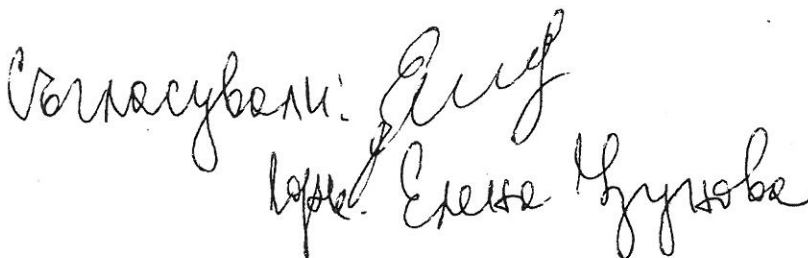 Съгласували:
юрк. Елена Узунова